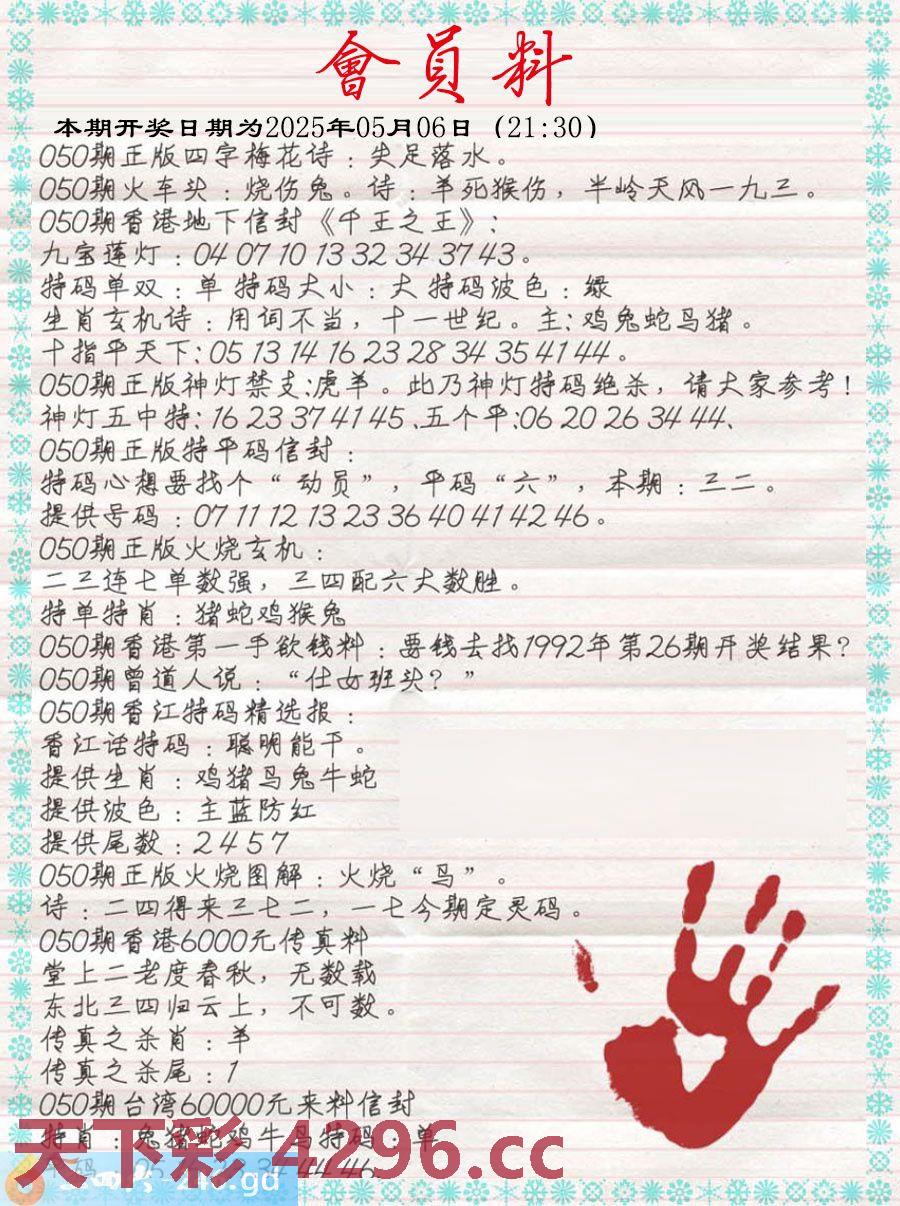 會員料
本期开奖日期为2025年05月06日（21:30）
050期正版四字梅花诗：失足落水。
050期火车头：烧伤兔。诗：羊死猴伤，半岭天风一九三。
050期香港地下信封《千王之王》：
九宝莲灯：04 07 10 13 32 34 37 43。
特码单双：单 特码大小：大 特码波色：绿
生肖玄机诗：用词不当，十一世纪。主：鸡兔蛇鸟猪。
十指平天下：05 13 14 16 23 28 34 35 41 44。
050期正版神灯禁支：虎羊。此乃神灯特码绝杀，请大家参考！
神灯五中特：16 23 37 41 45、五个平：06 20 26 34 44、
050期正版特平码信封：
特码心想要找个“动员”，平码“六”，本期：三二。
提供号码：07 11 12 13 23 36 40 41 42 46。
050期正版火烧玄机：
二三连七单数强，三四配六大数胜。
特单特肖：猪蛇鸡猴兔
050期香港第一手欲钱料：要钱去找1992年第26期开奖结果？
050期曾道人说：“仕女班头？”
050期香江特码精选报：
香江话特码：聪明能干。
提供生肖：鸡猪鸟兔牛蛇
提供波色：主蓝防红
提供尾数：2 4 5 7
050期正版火烧图解：火烧“鸟”。
诗：二四得来三七二，一七今期定灵码。
050期香港6000元传真料
堂上二老度春秋，无数载
东北三四归云上，不可数。
传真之杀肖：羊
传真之杀尾：1
050期台湾60000元来料信封
特肖：兔猪蛇鸡牛鸟特码：单
天下彩 4296.cc
44 46
.gd